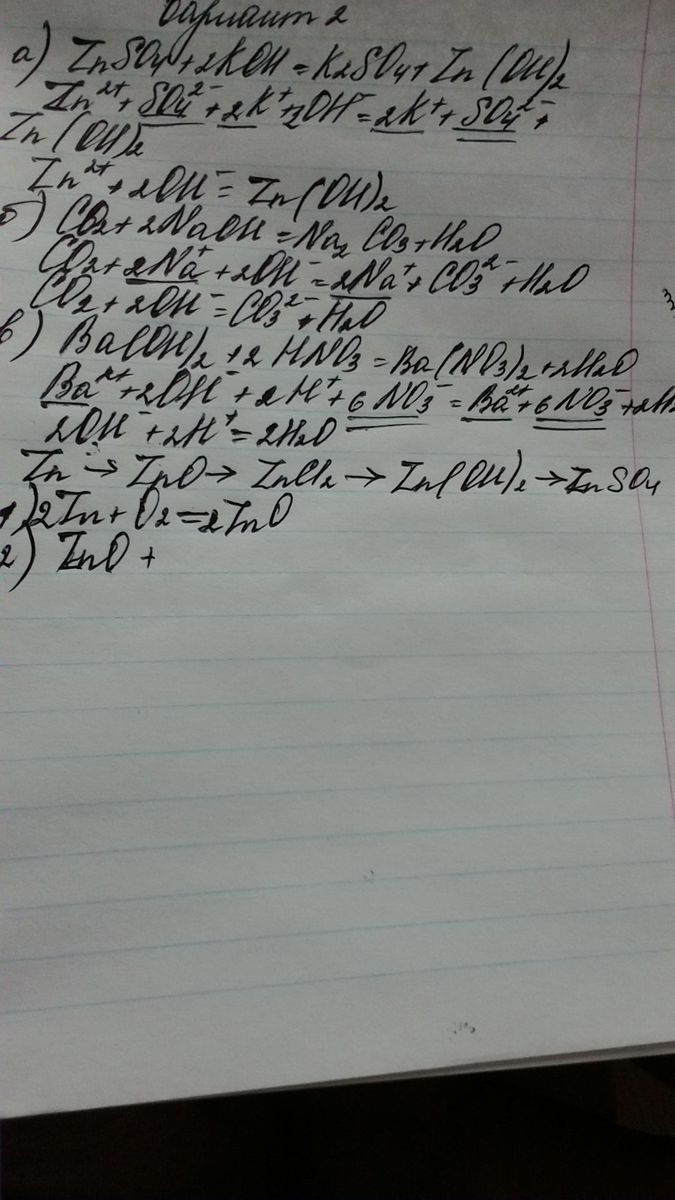 Вариант 2
а) ZnSO4 + 2KOH = K2SO4 + Zn(OH)2
Zn²⁺ + SO4²⁻ + 2K⁺ + 2OH⁻ = 2K⁺ + SO4²⁻ +
Zn(OH)2
Zn²⁺ + 2OH⁻ = Zn(OH)2
б) CO2 + 2NaOH = Na2CO3 + H2O
CO2 + 2Na⁺ + 2OH⁻ = 2Na⁺ + CO3²⁻ + H2O
CO2 + 2OH⁻ = CO3²⁻ + H2O
в) Ba(OH)2 + 2HNO3 = Ba(NO3)2 + 2H2O
Ba²⁺ + 2OH⁻ + 2H⁺ + 6NO3⁻ = Ba²⁺ + 6NO3⁻ + 2H2
2OH⁻ + 2H⁺ = 2H2O
Zn → ZnO → ZnCl2 → Zn(OH)2 → ZnSO4
1) 2Zn + O2 = 2ZnO
2) ZnO +